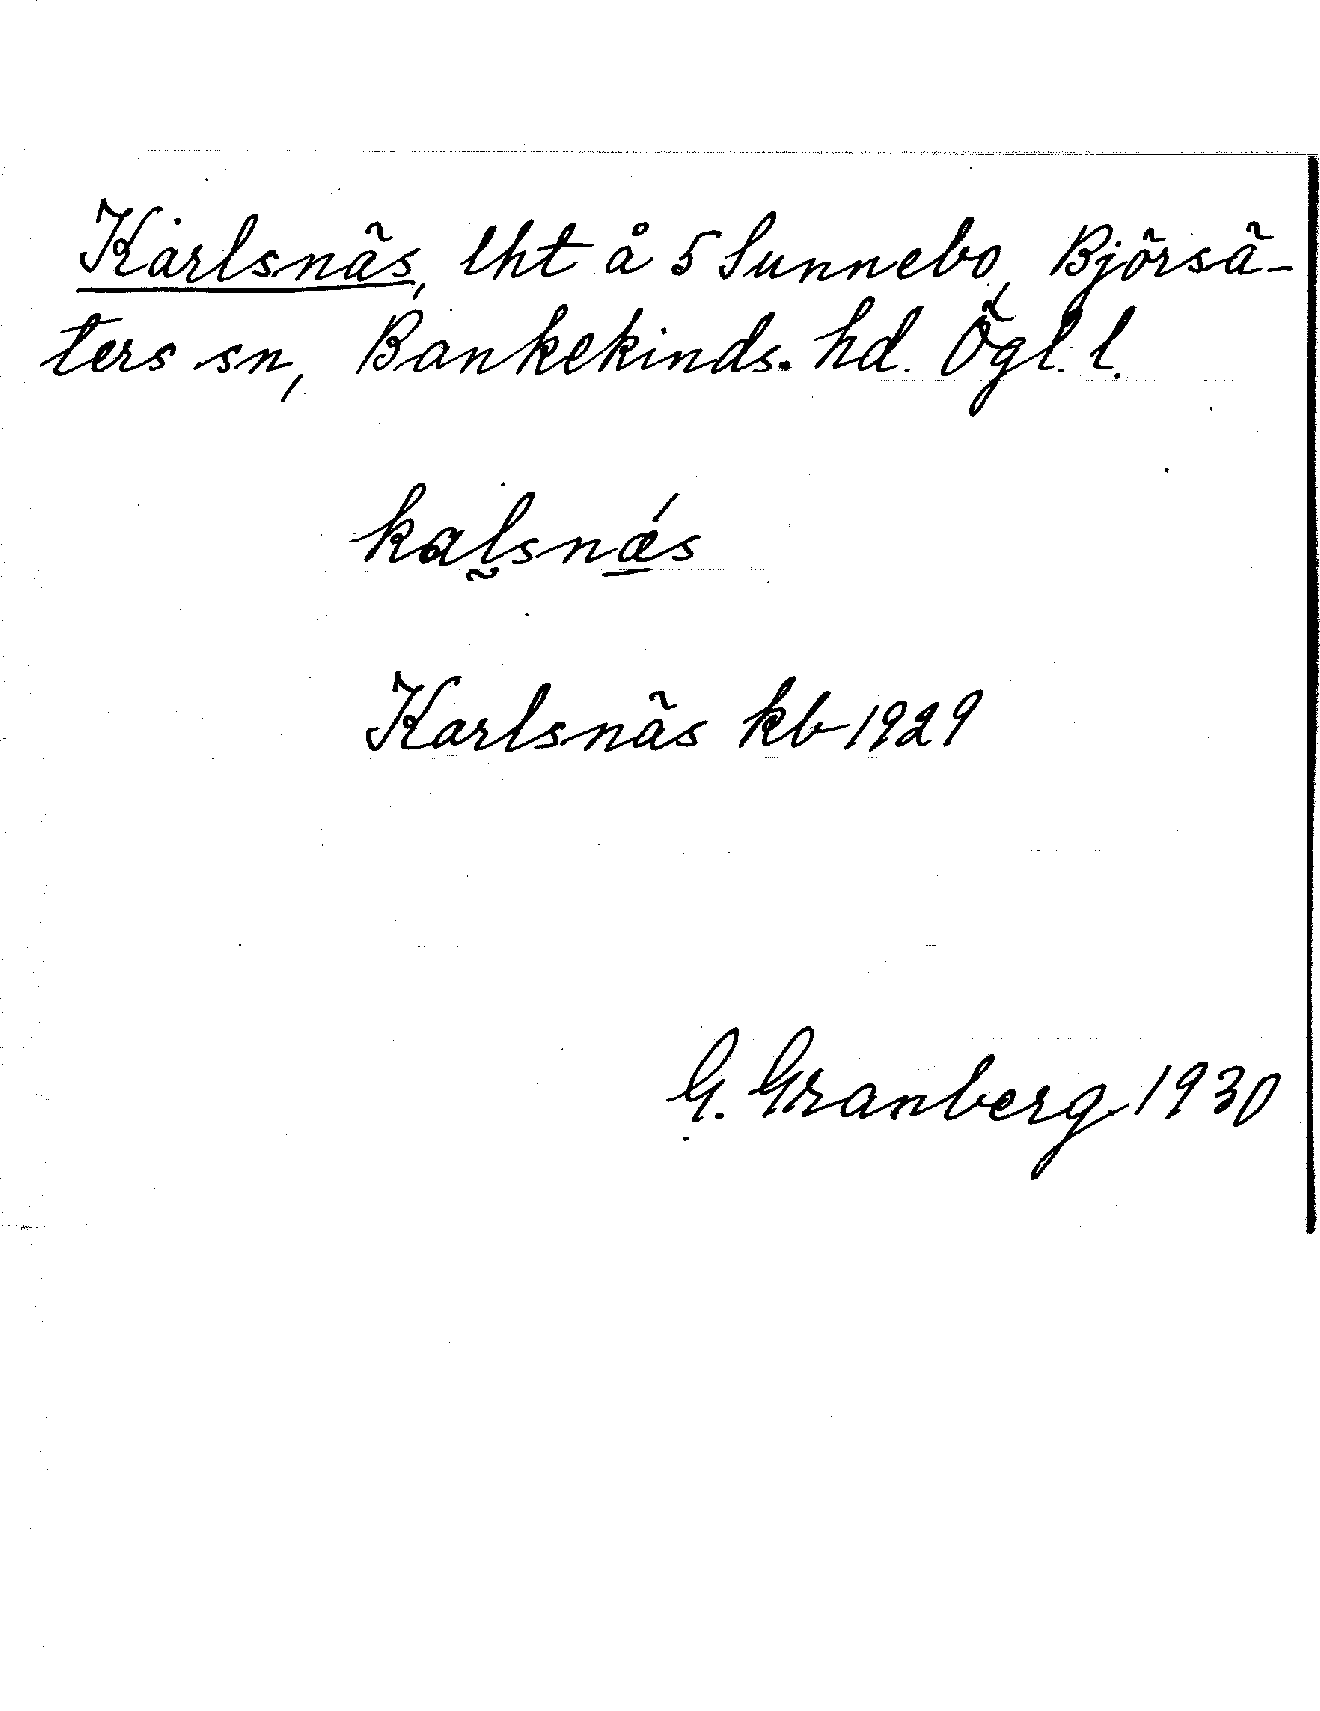 Karlsnäs, lht å 5 Sunnebo, Björsä-
ters sn, Bankekinds hd. Ögl. l.
kal̰snǽ̱s
Karlsnäs kb 1929
G. Granberg 1930